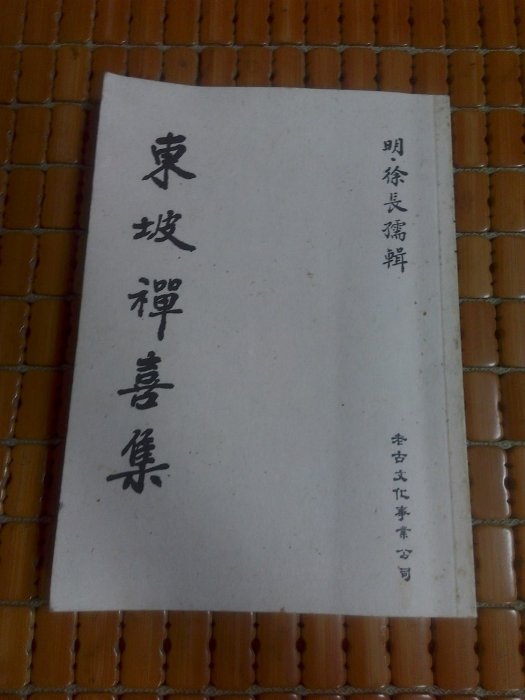 明·徐長孺輯
東坡禪喜集
老古文化事業公司